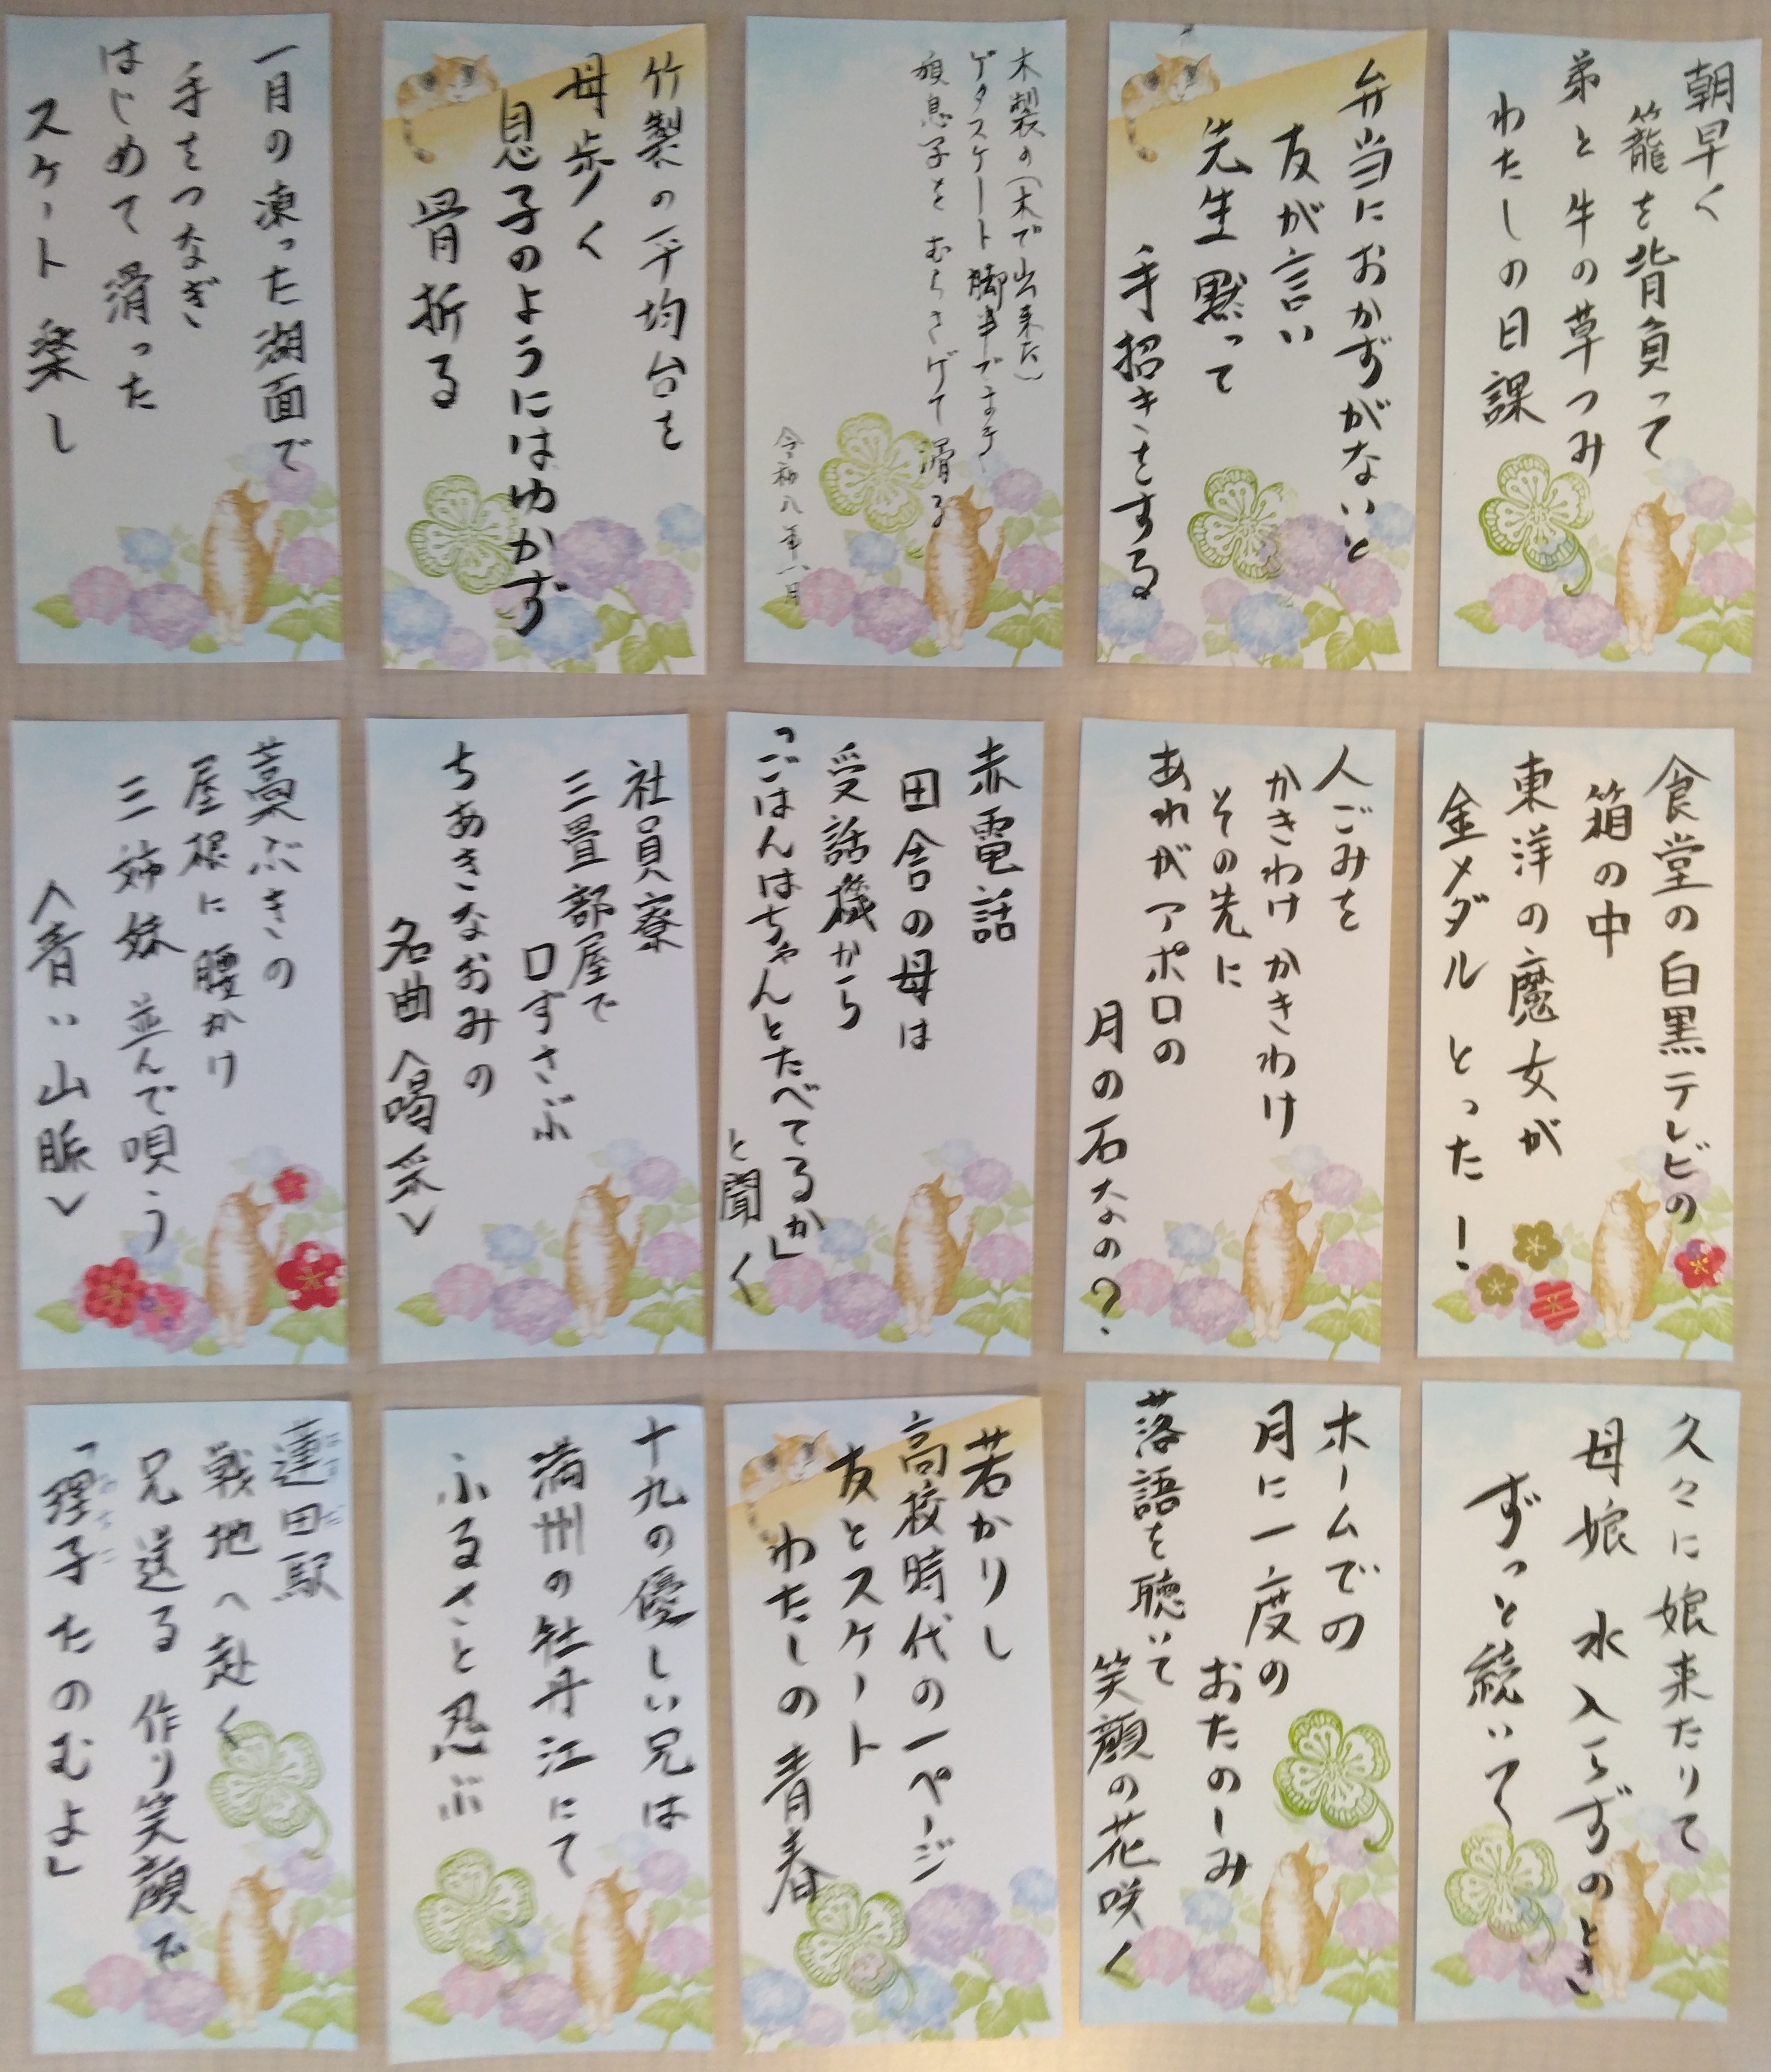 朝早く
籠を背負って
弟と牛の草つみ
わたしの日課
弁当におかずがないと
友が言い
先生黙って
手招きをする
木製の(木で出来た)
ゲタスケート脚半でまき
娘息子を むらさげて 滑る
令和八年一月
竹製の平均台を
母歩く
息子のようにはゆかず
骨折る
一月の凍った湖面で
手をつなぎ
はじめて滑った
スケート楽し
食堂の白黒テレビの
箱の中
東洋の魔女が
金メダルとった!
人ごみを
かきわけかきわけ
その先に
あれがアポロの
月の石なの?
赤電話
田舎の母は
受話機から
「ごはんはちゃんとたべてるか」
と聞く
社員寮
三畳部屋で
口ずさぶ
ちあきなおみの
名曲〈喝采〉
藁ぶきの
屋根に腰かけ
三姉妹 並んで唄う
〈青い山脈〉
久々に娘来たりて
母娘 水入らずのとき
ずっと続いて
ホームでの
月に一度の
おたのしみ
落語を聴いて
笑顔の花咲く
若かりし
高校時代の一ページ
友とスケート
わたしの青春
十九の優しい兄は
満州の牡丹江にて
ふるさと忍ぶ
蓮田駅
戦地へ赴く
兄送る 作り笑顔で
「理子たのむよ」